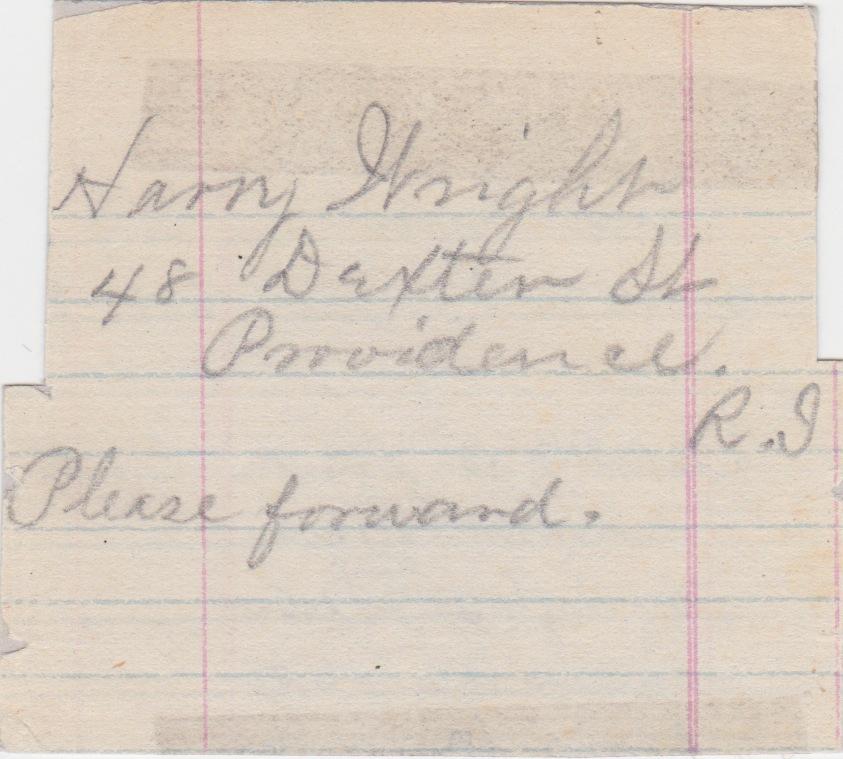 Harry Wright
48 Dexter St
Providence.
R.I
Please forward.